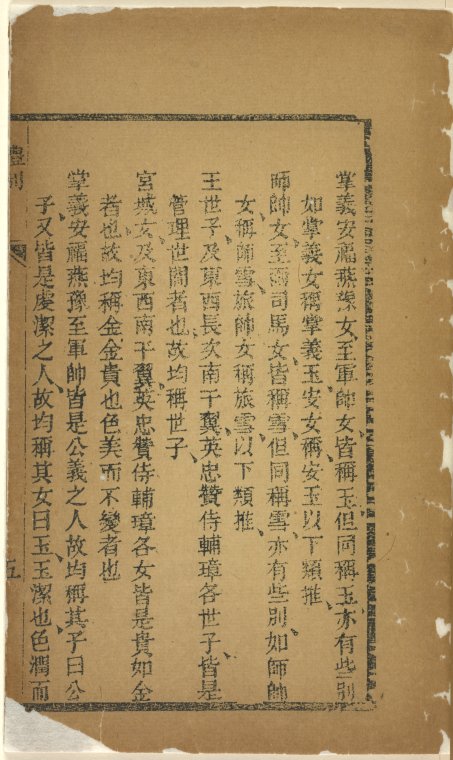 掌義安福燕豫女至軍帥女皆稱玉但同稱玉亦有些別
如掌義女稱掌義玉安女稱安玉以下類推
師帥女至兩司馬女皆稱雪但同稱雪亦有些別如師帥
女稱師雪旅帥女稱旅雪以下類推
王世子及東西長次南千翼英忠贊侍輔璋各世子皆是
管理世間者也故均稱世子
宮城女及東西南千翼英忠贊侍輔璋各女皆是貴如金
者也故均稱金金貴也色美而不變者也
掌義安福燕豫至軍帥皆是公義之人故均稱其子曰公
子又皆是虔潔之人故均稱其女曰玉玉潔也色潤而
五